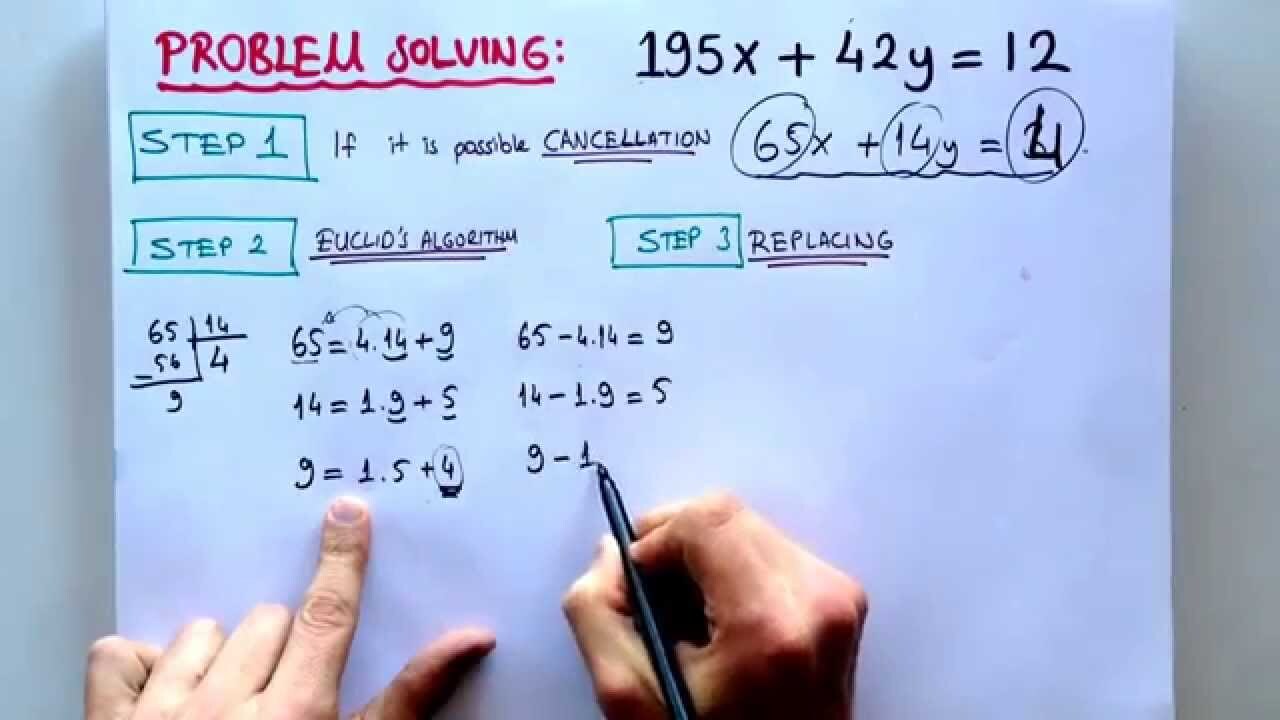 PROBLEM SOLVING: 195x + 42y = 12
STEP 1 If it is possible CANCELLATION 65x + 14y = 4.
STEP 2 EUCLID'S ALGORITHM STEP 3 REPLACING
65 14
- 56 4
9
65 = 4.14 + 9
14 = 1.9 + 5
9 = 1.5 + 4
65 - 4.14 = 9
14 - 1.9 = 5
9 - 1